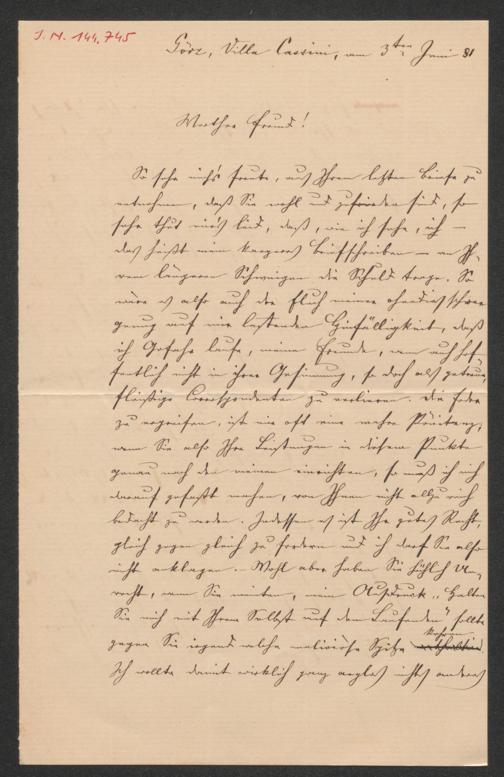 I. N. 144.745
Görz, Villa Cassini, am 3ten Juni 81
Werther Freund!
So sehr mich's freute, aus Ihrem letzten Briefe zu
entnehmen, daß Sie wohl und zufrieden sind, so
sehr thut mir's leid, daß, wie ich sehe, ich —
das heißt mein karges Briefschreiben — an Ih-
rem längeren Schweigen die Schuld trage. So
wäre es also auch der Fluch meiner ohnedies schwer
genug auf mir lastenden Hinfälligkeit, daß
ich Gefahr laufe, meine Freunde, wenn auch hof-
fentlich nicht in ihrer Gesinnung, so doch als getreue,
fleißige Correspondenten zu verlieren. Die Feder
zu ergreifen, ist mir oft eine wahre Pönitenz,
wenn Sie also Ihre Leistungen in diesem Punkte
genau nach den meinen einrichten, so muß ich mich
darauf gefaßt machen, von Ihnen nicht allzu reich
bedacht zu werden. Indessen es ist Ihr gutes Recht,
gleich gegen gleich zu fordern und ich darf Sie also
nicht anklagen. Wohl aber haben Sie höchlich Un-
recht, wenn Sie meinten, mein Ausdruck „Halten
Sie mich mit Ihrem Selbst auf dem Laufenden" sollte
gegen Sie irgend welche maliziöse Spitze
Ich wollte damit wirklich ganz arglos nichts anderes